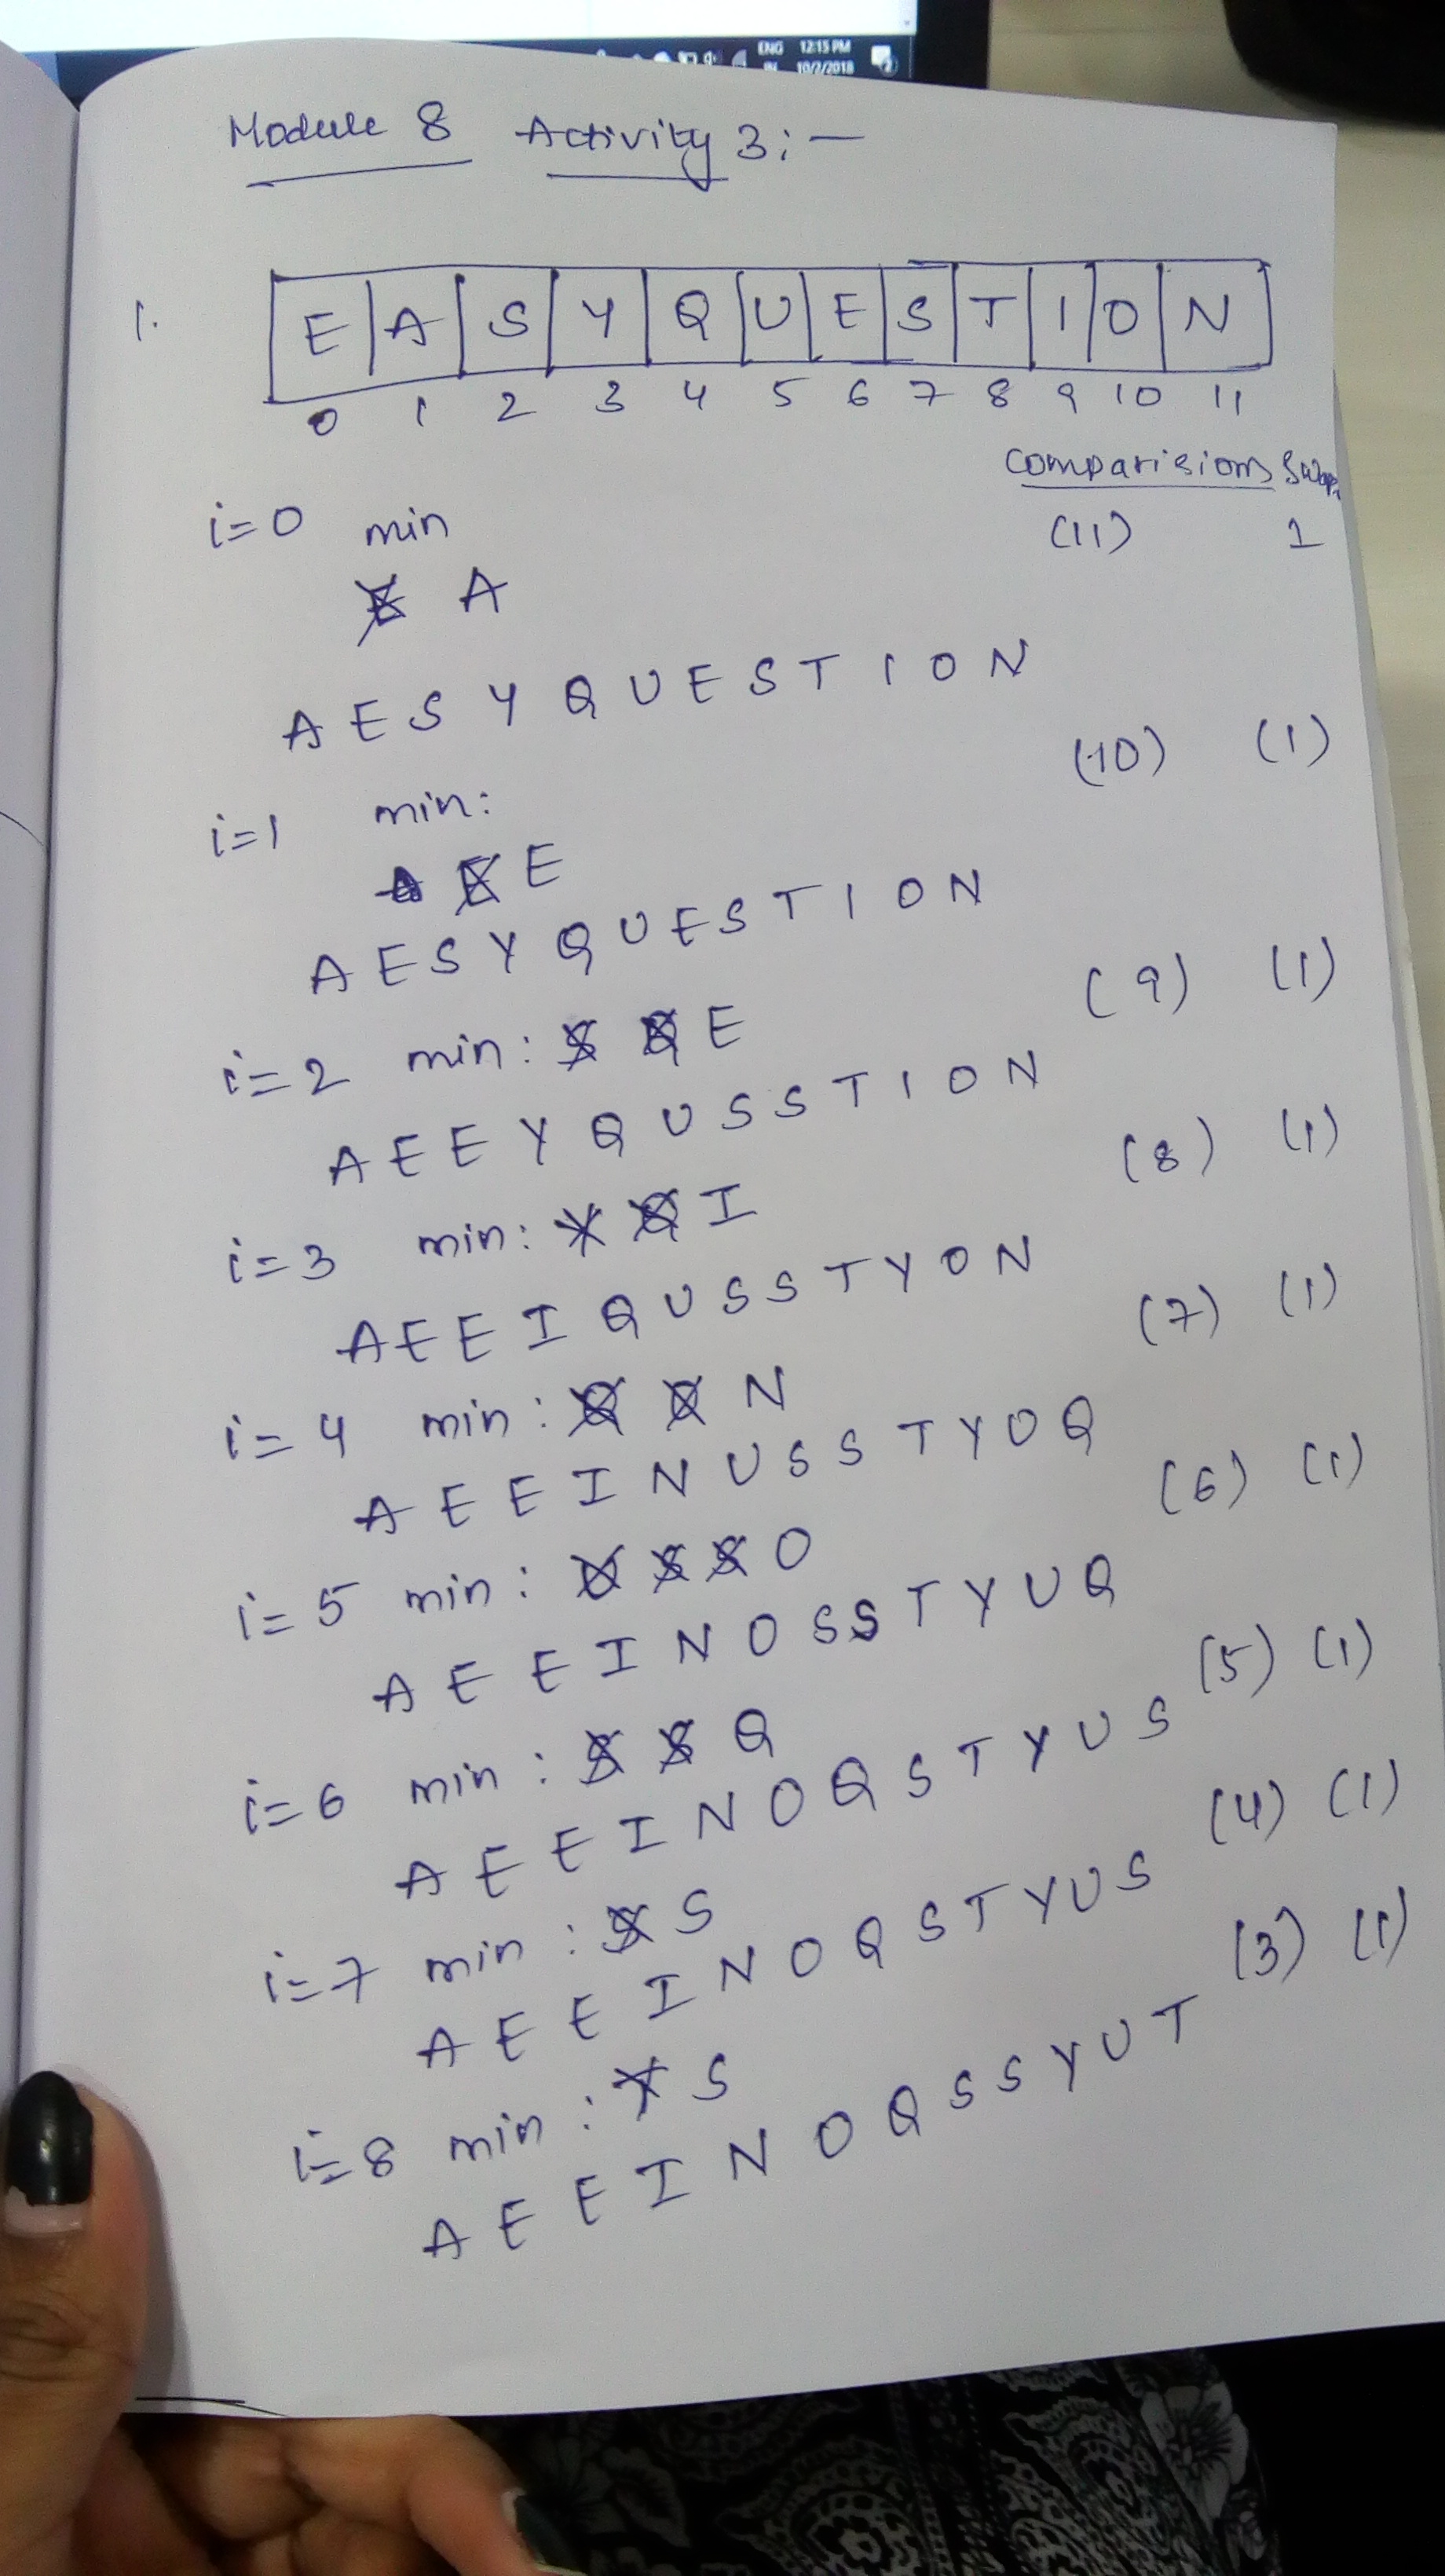 ENG 12:15 PM
IN 10/2/2018
Module 8 Activity 3:-
1. E A S Y Q U E S T I O N
0 1 2 3 4 5 6 7 8 9 10 11
Comparisions Swaps
i=0 min (11) 1
E A
A E S Y Q U E S T I O N
(10) (1)
i=1 min:
A E E
A E S Y Q U E S T I O N
(9) (1)
i=2 min: S Q E
A E E Y Q U S S T I O N
(8) (1)
i=3 min: Y Q I
A E E I Q U S S T Y O N
(7) (1)
i=4 min: Q O N
A E E I N U S S T Y O Q
(6) (1)
i=5 min: U S S O
A E E I N O S S T Y U Q
(5) (1)
i=6 min: S S Q
A E E I N O Q S T Y U S
(4) (1)
i=7 min: S S
A E E I N O Q S T Y U S
(3) (1)
i=8 min: T S
A E E I N O Q S S Y U T